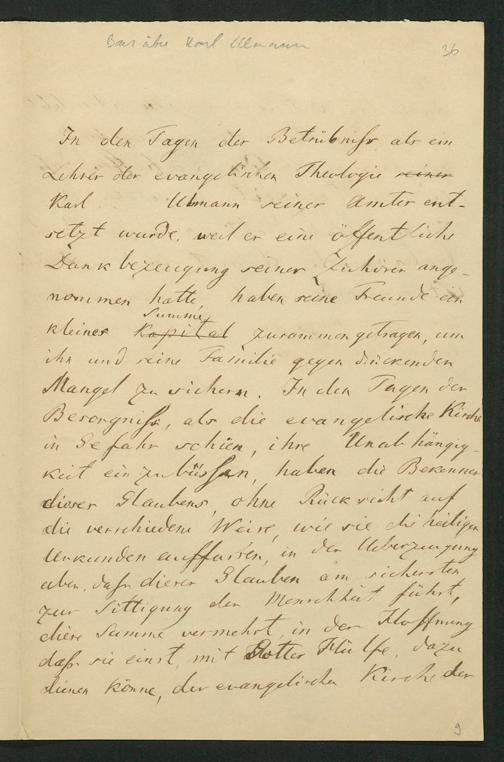 Baer über Karl Ulmann
36
In den Tagen der Betrübniss als ein
Lehrer der evangelischen Theologie seiner
Karl Ulmann seiner Ämter ent-
setzt wurde, weil er eine öffentliche
Dankbezeugung seiner Zuhörer ange-
nommen hatte, haben seine Freunde ein
Summe
kleines Kapital zusammengetragen, um
ihn und seine Familie gegen drückenden
Mangel zu sichern. In den Tagen der
Besorgniss, als die evangelische Kirche
in Gefahr schien, ihre Unabhängig-
keit einzubüssen, haben die Bekenner
dieses Glaubens, ohne Rücksicht auf
die verschiedene Weise, wie sie die heiligen
Urkunden auffassen, in der Ueberzeugung
aber, dass dieser Glauben am sichersten
zur Sittigung der Menschheit führt,
diese Summe vermehrt, in der Hoffnung
dass sie einst, mit Gottes Hülfe, dazu
dienen könne, der evangelischen Kirche der
9